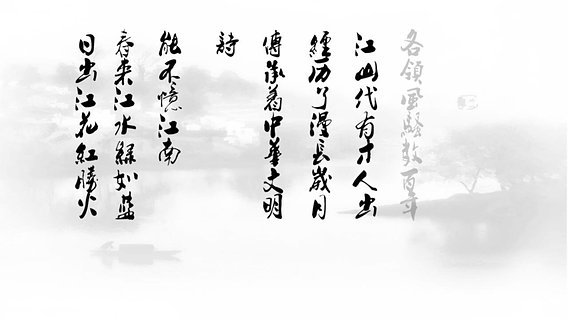 日出江花紅勝火
春来江水綠如藍
能不憶江南
詩
傳承着中華文明
經历了漫長歲月
江山代有才人出
各領風騷數百年